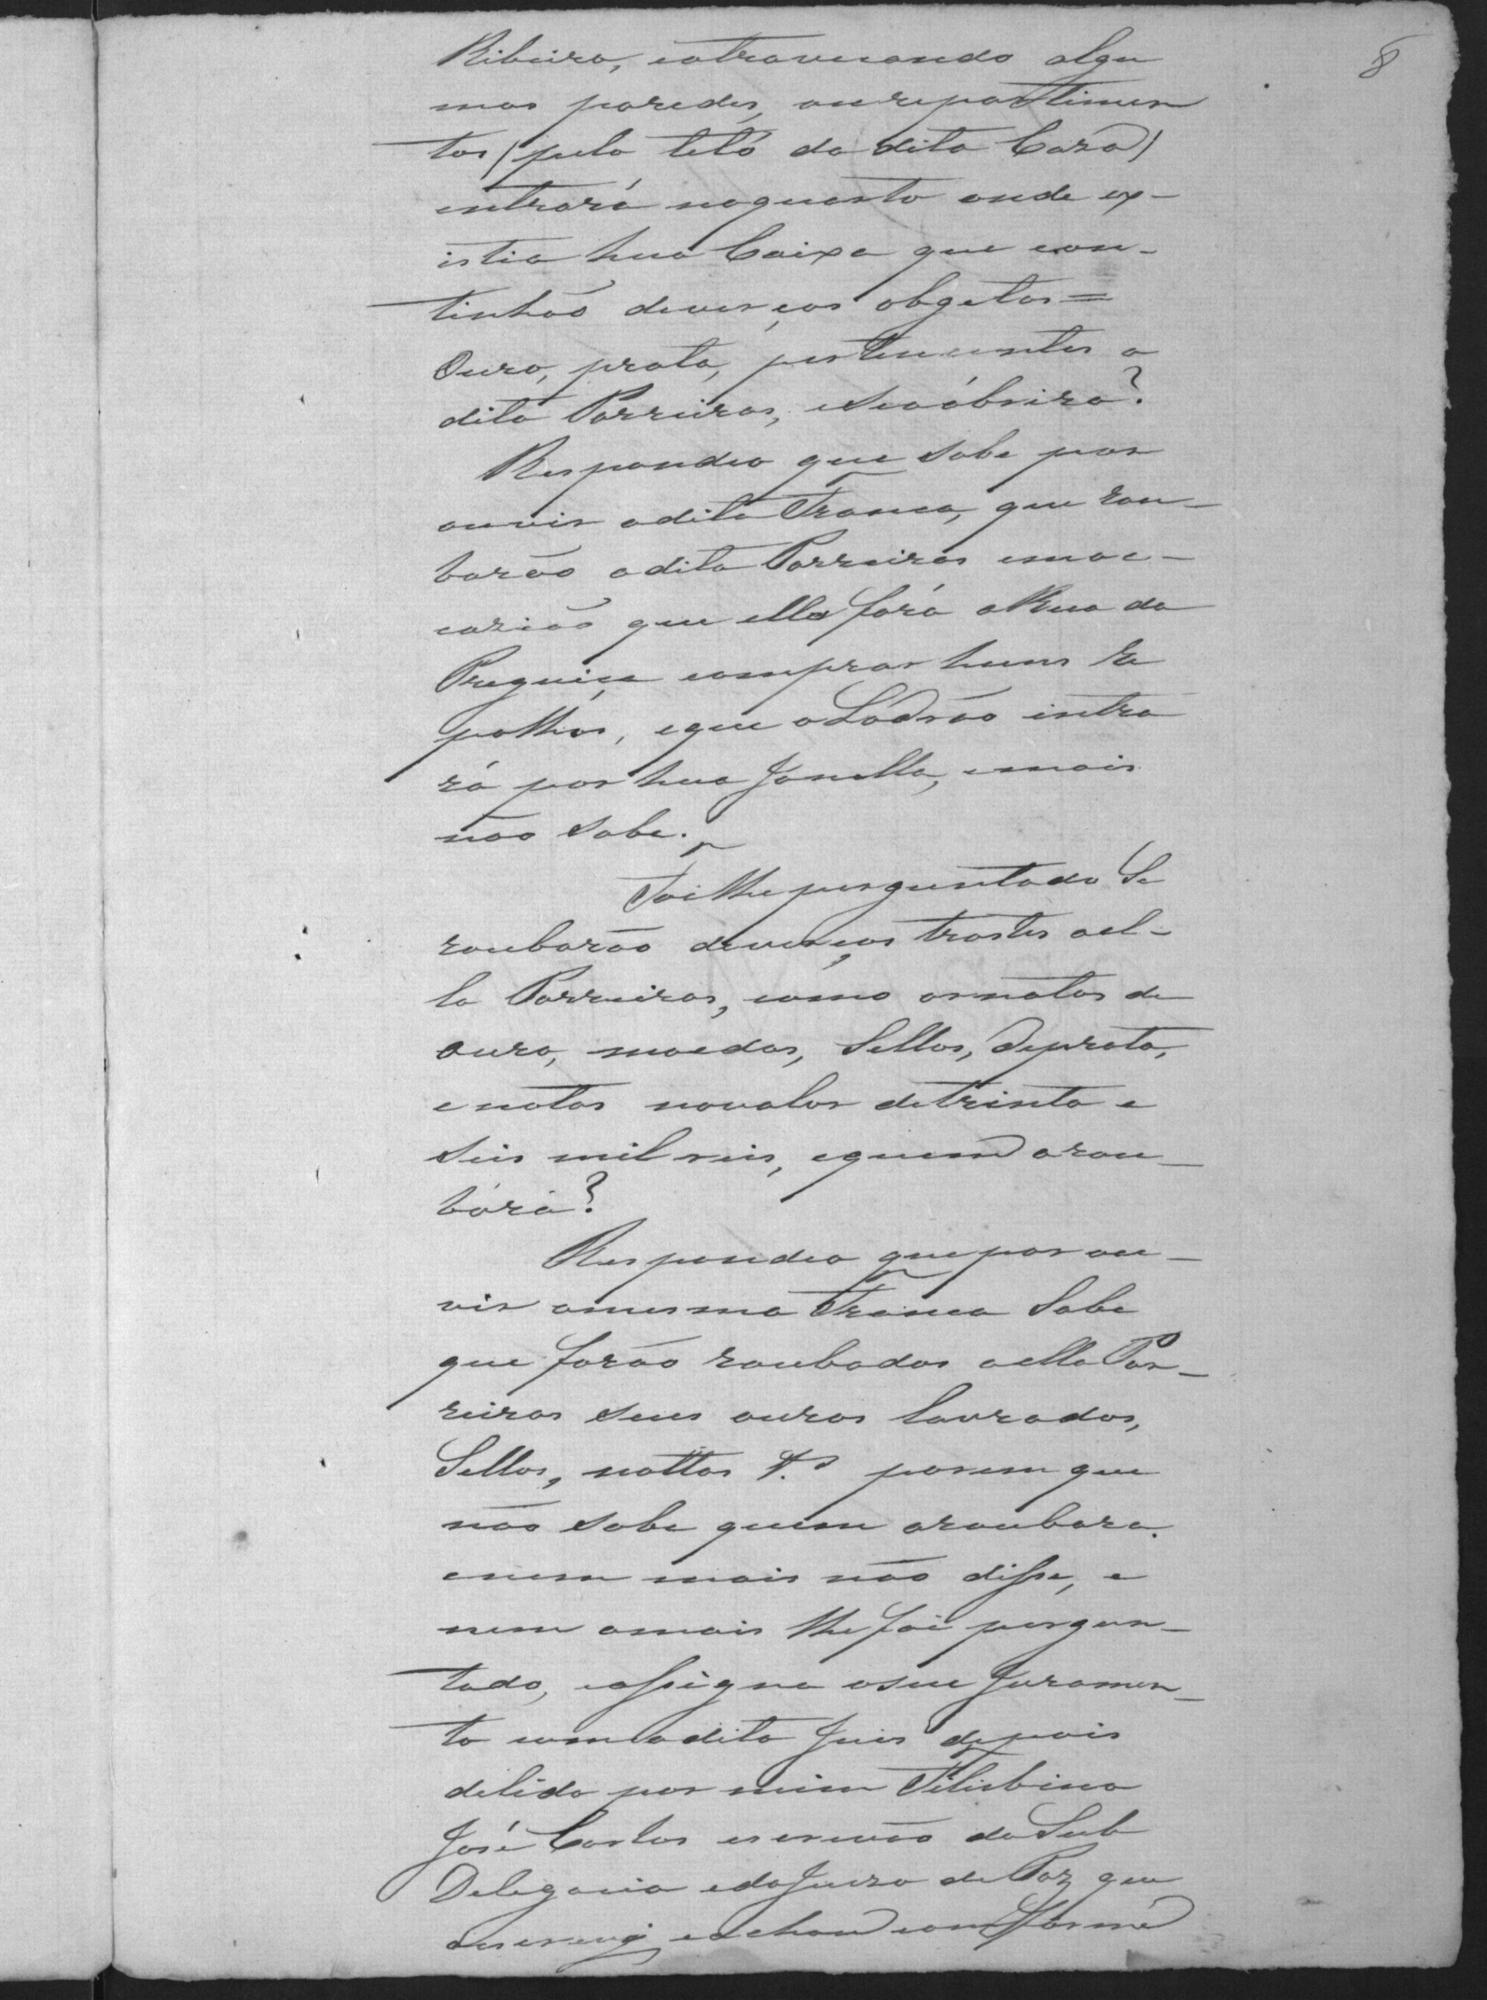 8
Ribeiro, extraviando algu
mas paredes, ou repartimen
tos (pelo této da dita Caza)
entrará no quarto onde ex-
istia hua Caixa que con-
tinhão deverços obgetos =
Ouro, prata, pertencentes a
dita Parreiras, e se a óbrira?
Respondeo que sabe por
ouvir a dita Franca, que rou-
barão a dita Parreiras em oc-
cazião que ella forá a Rua da
Preguiça comprar huns re
polhos, e que o Ladrão intra
rá por hua Janella, e mais
não sabe.
Foi lhe perguntado Se
roubarão deverços trastes a el-
la Parreiras, como ornatos de
ouro, moedas, Sellos, de prata,
e notas no valor de trinta e
seis mil reis, e quem a rou-
bára?
Respondeo que por ou-
vir a mesma Franca Sabe
que forão roubados a ella Par-
reiras seus ouros lavrados,
Sellos, nottas &.ª porem que
não sabe quem a roubara.
e nem mais não disse, e
nem a mais lhe foi pergun-
tado, e assigna o seu Juramen-
to com o dito Juis depois
de lido por mim Felisbino
José Carlos escrivão da Sub
Delegacia e do Juizo de Paz que
escrevi, e achou conforme